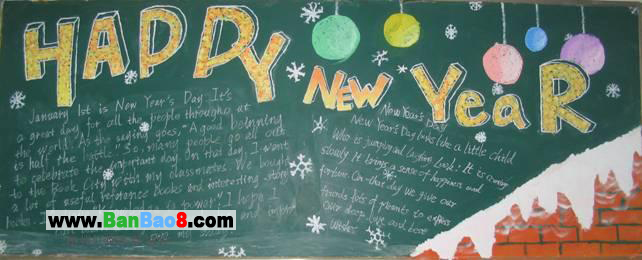 HAPPY NEW YeaR
January 1st is New Year's Day. It's
a great day for all the people throughs at
the world. As the saying goes, "A good beginning
is half the battle". So, many people go all out
to celebrate the important day. On that day, I went
to the Book City with my classmates. We bought
a lot of useful reference books and interesting story
I hope I
New Year's Day
New Year's Day looks like a little child
Who is jumping and laughing
slowly It brings a sense of happiness and
fortune. On that day we give our
friends lots of presents to express
our deep love and best
wishes
www.BanBao8.com